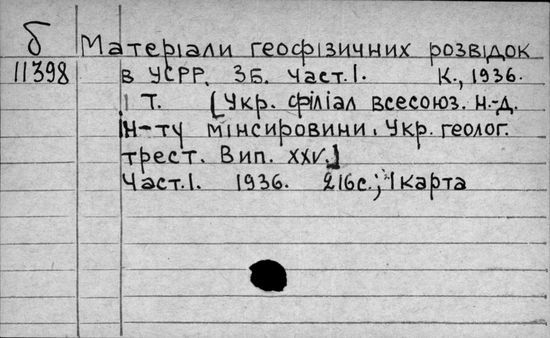 б Матеріали геофізичних розвідок
11398 в УСРР. Зб. Част. І. К., 1936.
1 т. [Укр. філіал всесоюз. н.-д.
ін-ту мінсировини. Укр. геолог.
трест. Вип. XXV.]
Част. І. 1936. 216 с.; 1 карта